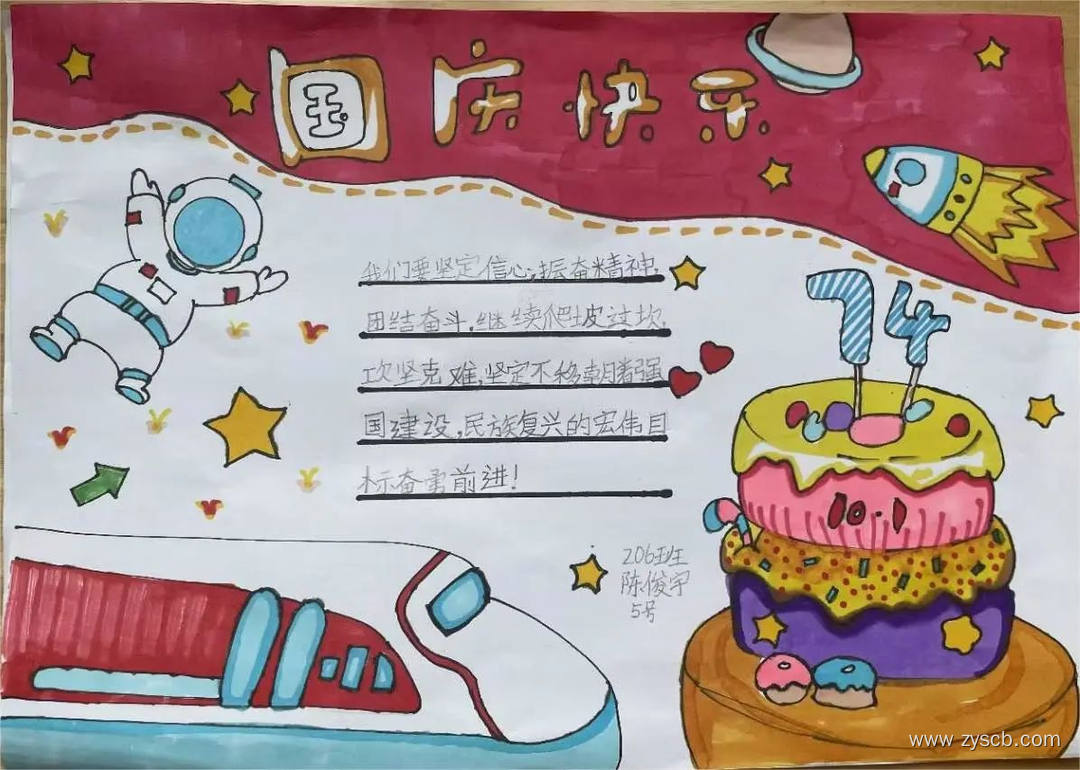 国庆快乐
我们要坚定信心,振奋精神.
团结奋斗.继续爬坡过坎
攻坚克难,坚定不移朝着强
国建设,民族复兴的宏伟目
标奋勇前进!
74
10.1
206班
陈俊宇
5号
www.zyscb.com